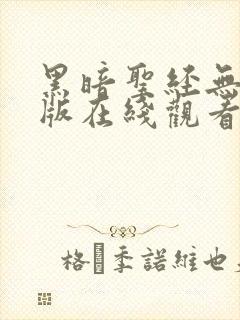 黑暗聖経無
版在綫觀看
格季諾維也